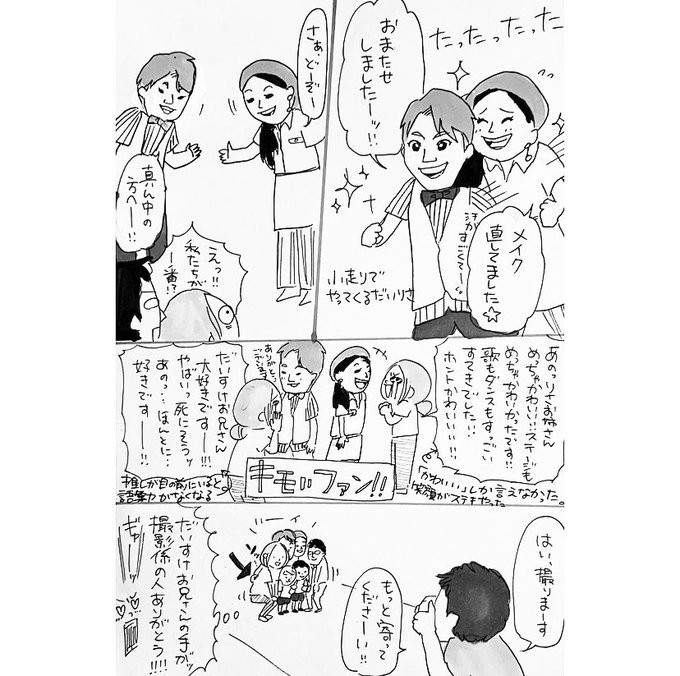 たったったったった
おまたせ
しましたーーッ!!
メイク
直してました☆
小走りで
やってくるだいりさ
さぁ、どーぞー
真ん中の
方へーー!!
えっ!!
私たちが
一番!?
あのっりさお姉さん
めっちゃかわいいっステージも
めっちゃかわいかったです!!
歌もダンスもすっごい
すてきでした!!
ホントかわいいい!!
「かわいい」しか言えなかった。
笑顔がステキやった
ありがとう
ございます
だいすけお兄さん
大好きですーー!!!
やばいっ死にそうッ
あの…ほんとに…
好きですーー!!
キモいファン!!
推しが目の前にいると
語彙力がなくなる
はい、撮りまーす
もっと寄って
くださーい!!
だいすけお兄さんの手がッ
撮影係の人ありがとう!!!!
ギャーッ